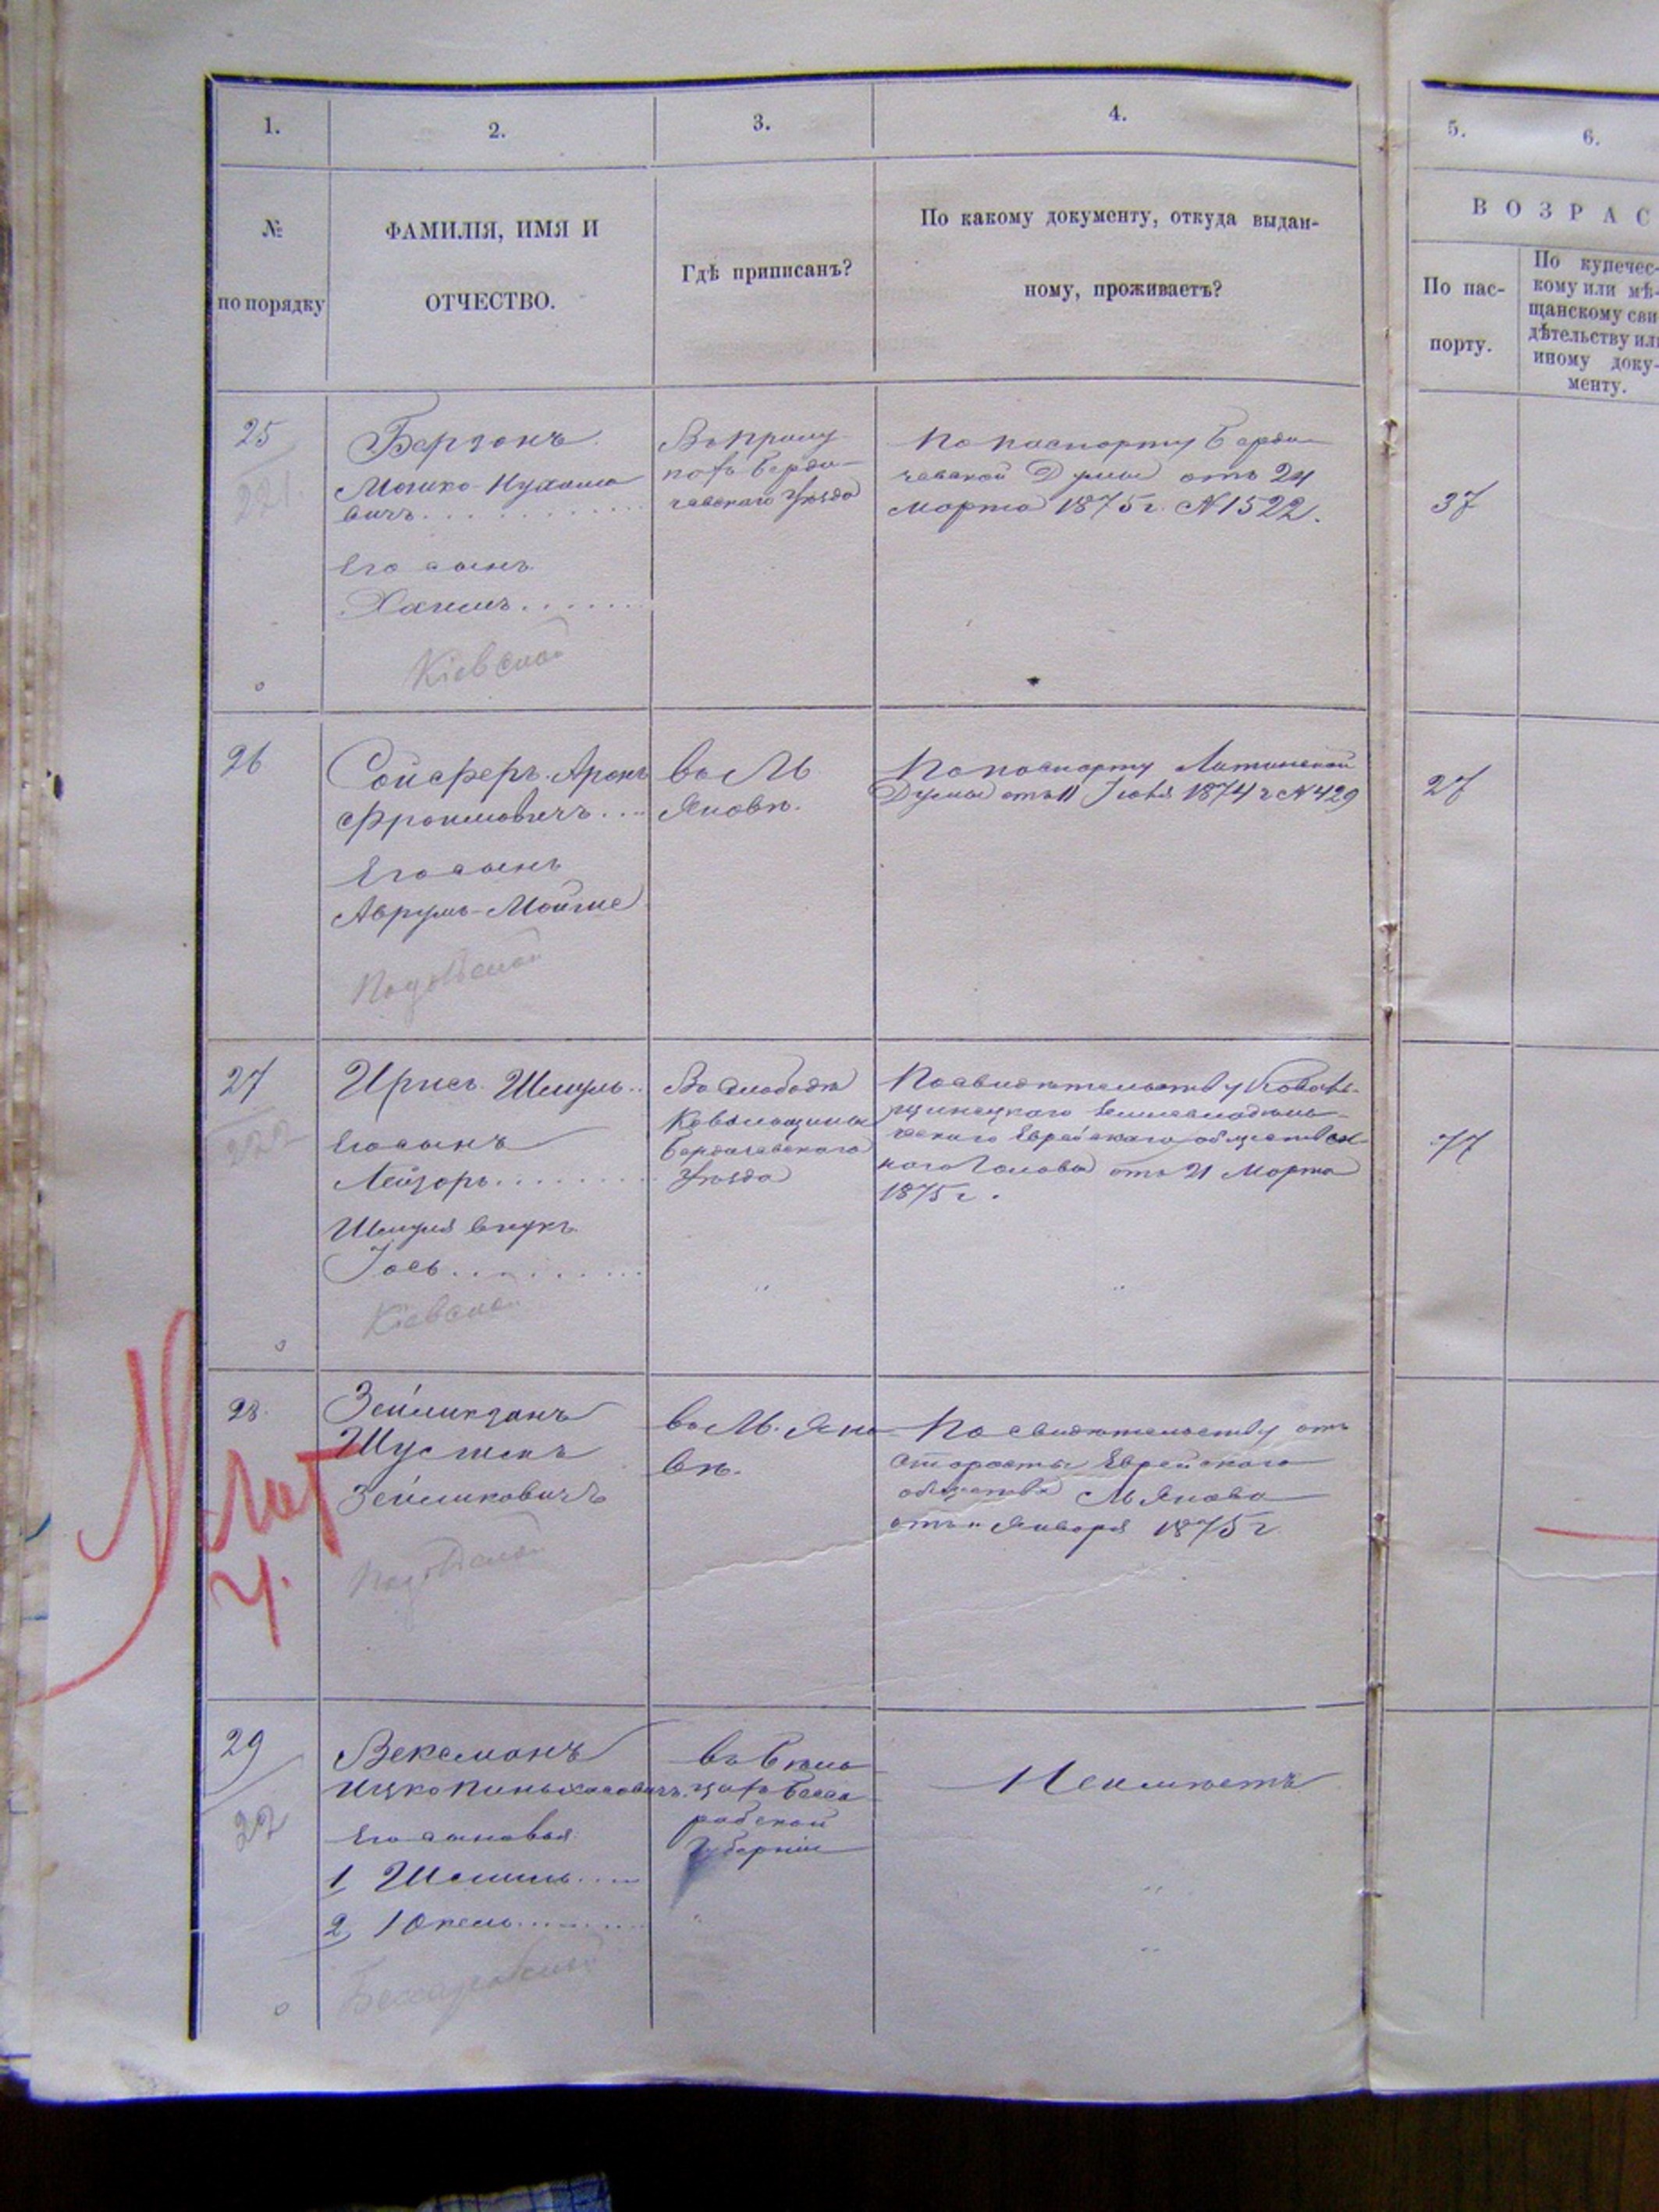 1.
2.
3.
4.
5.
6.
№
по порядку
ФАМИЛІЯ, ИМЯ И
ОТЧЕСТВО.
Гдѣ приписанъ?
По какому документу, откуда выдан-
ному, проживаетъ?
ВОЗРАС
По пас-
порту.
По купечес-
кому или мѣ-
щанскому сви
дѣтельству ил
иному доку-
менту.
25
221
Берзонъ
Мошко
вичъ
Его сынъ
Хаимъ
Кіевской
Берди-
чевскаго Уѣзда
По паспорту Берди
чевской Думы отъ 24
марта 1875 г. №1522.
37
26
Сойферъ Аронъ
Фроимовичъ
Его сынъ
Аврумъ-Мойше
Подольской
въ М.
Яновѣ.
По паспорту Литинской
Думы отъ 11 1874 г №429
27
27
222
Ирисъ Шмуль
Его сынъ
Лейзоръ
Шмуля внукъ
Іось
Кіевской
Въ слободѣ
Бердичевскаго
Уѣзда
По свидѣтельству
Еврейскаго
Головы отъ 21 Марта
1875 г.
77
28.
Зейликзонъ
Шусменъ
Зейликовичъ
Подольской
въ М. Яно
вѣ.
По свидѣтельству отъ
старосты Еврейского
общества М Янова
отъ " Января 1875 г
4.
29
22
Вексманъ
Ицко Пиньхасовичъ
Его сыновья
1 Шмиль
2 Юкель
Бессарабской
въ Бѣль
цахъ Бесса
рабской
Губерніи
Неимѣетъ